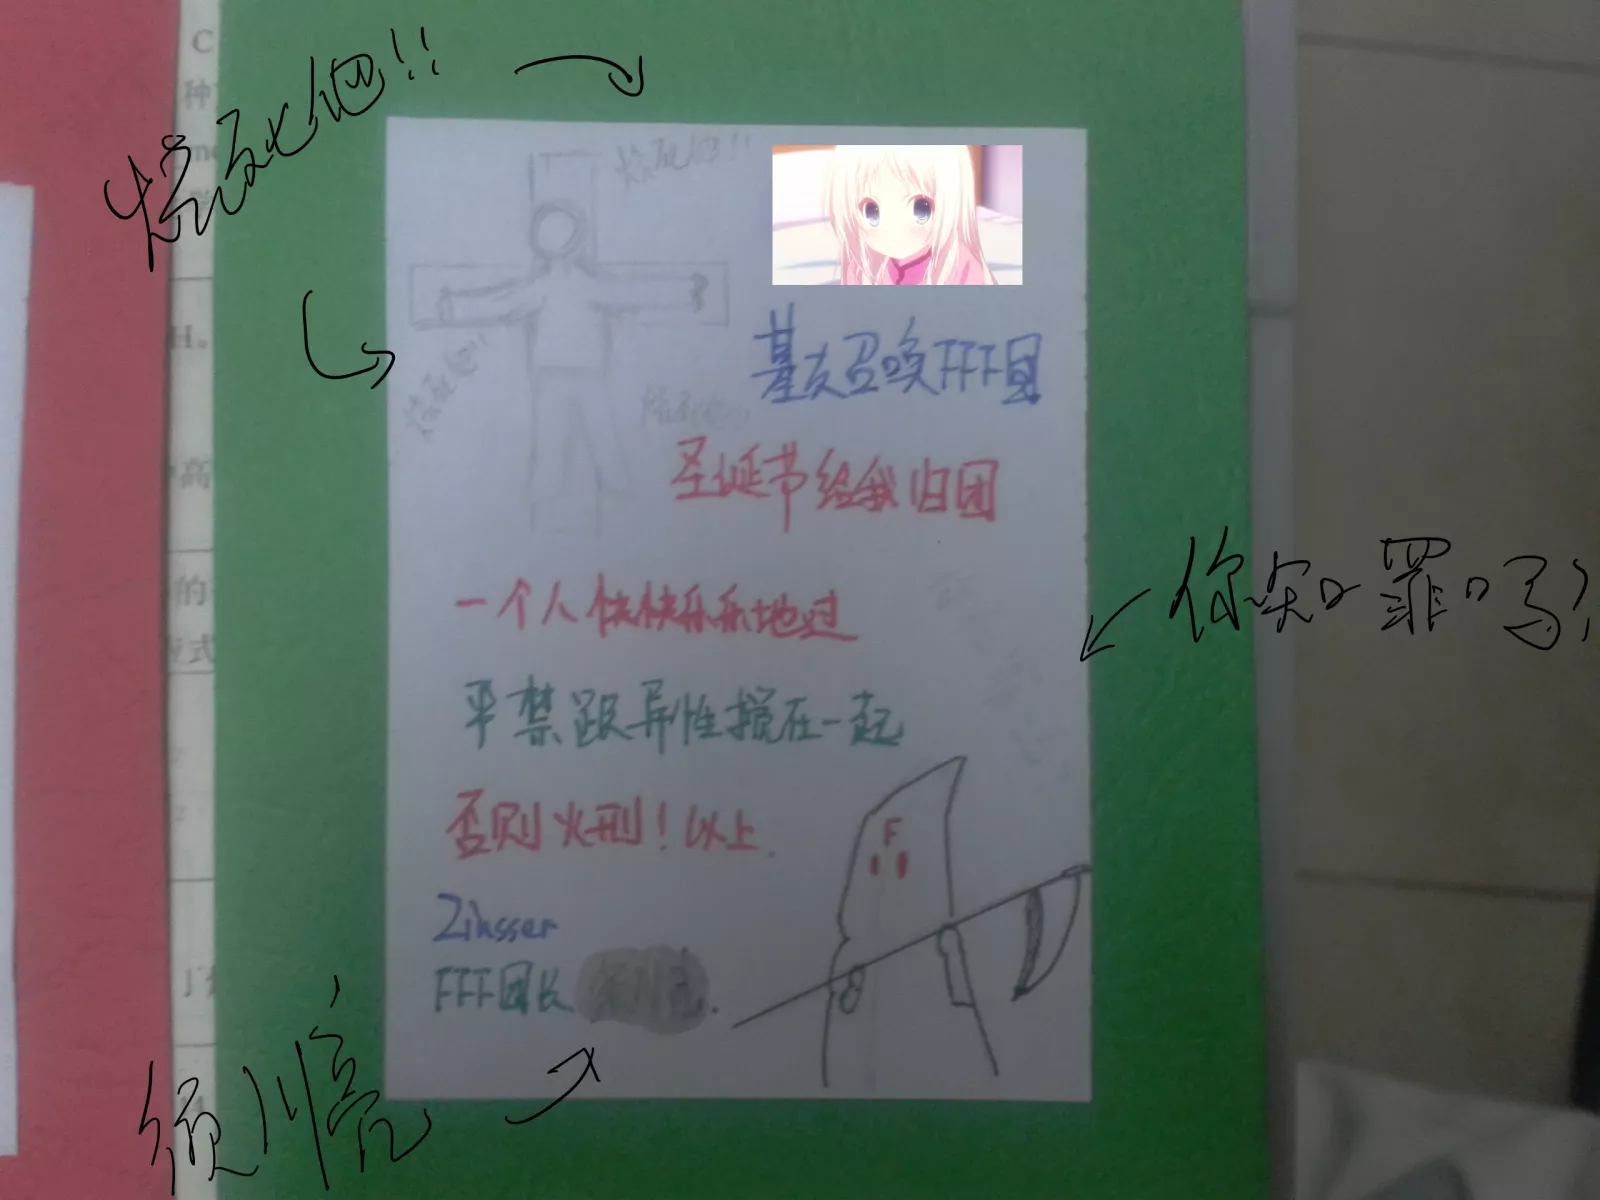 烧死他!!
烧死他!!
烧死他!!
烧死他!!
基友召唤FFF团
圣诞节给我归团
一个人快快乐乐地过
严禁跟异性搅在一起
你知罪吗?
否则火刑!以上.
F
Zinsser
FFF团长
C
种
H。
高
的
应式
须川亮